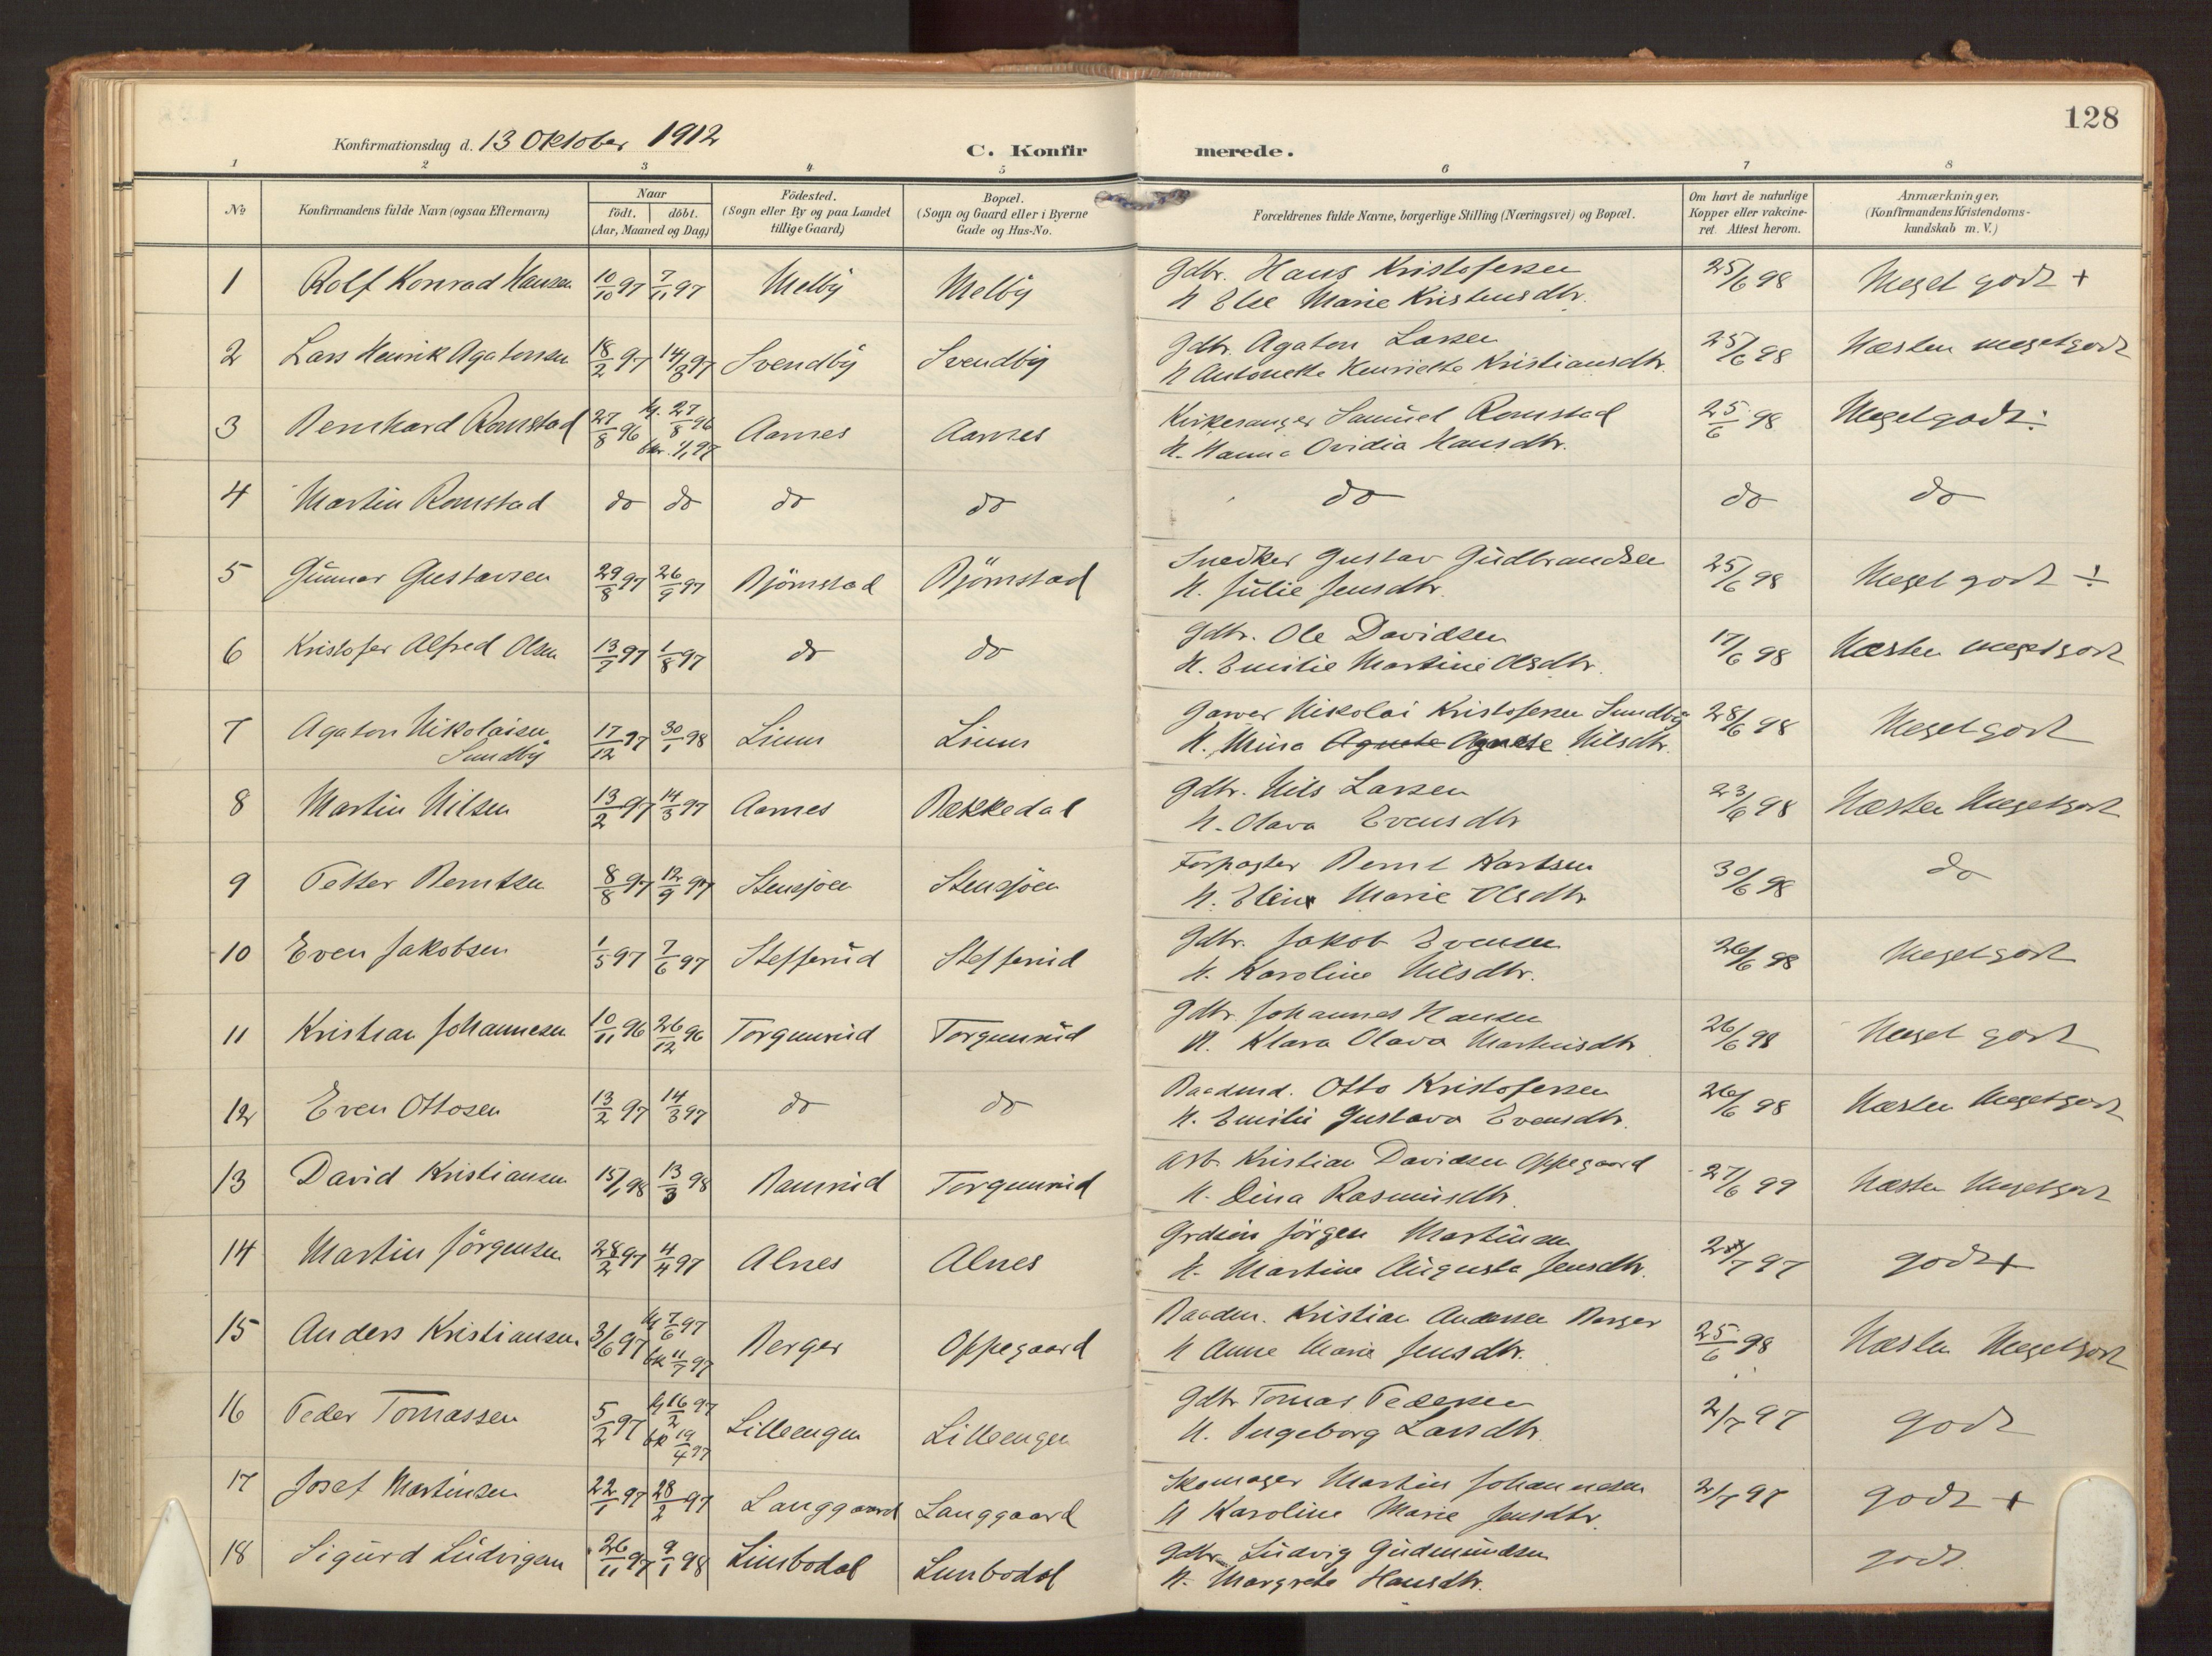 128
Konfirmationsdag d. 13 Oktober 1912
C. Konfirmerede.
1 2 3 4 5 6 7 8
No
Konfirmandens fulde Navn (ogsaa Efternavn)
Naar
födt. döbt.
(Aar, Maaned og Dag)
Födested.
(Sogn eller By og paa Landet
tillige Gaard)
Bopæl.
(Sogn og Gaard eller i Byerne
Gade og Hus-No.
Forældrenes fulde Navne, borgerlige Stilling (Næringsvei) og Bopæl.
Om havt de naturlige
Kopper eller vakcine-
ret. Attest herom.
Anmærkninger.
(Konfirmandens Kristendoms-
kundskab m. V.)
1 Rolf Konrad Hansen 10/10 97 7/11 97 Melby Melby Gdbr. Hans Kristofersen 25/6 98 Meget godt +
H Else Marie Kristensdtr.
2 Lars Henrik Agatonsen 18/2 97 14/8 97 Svendby Svendby Gdbr. Agaton Larsen 25/6 98 Næsten megetgodt
H Antonette Henriette Kristiansdtr.
3 Bernhard Romstad 27/8 96 hj. 27/8 96 Aarnes Aarnes Kirkesanger Samuel Romstad 25/6 98 Megetgodt ÷
bkr. 1/1 97 H. Hanna Ovidia Hansdtr.
4 Martin Romstad do do do do do do do
5 Gunnar Gustavsen 29/8 97 26/9 97 Björnstad Björnstad Snedker Gustav Gudbrandsen 25/6 98 Meget godt ÷
H. Julie Jensdtr.
6 Kristofer Alfred Olsen 13/7 97 1/8 97 do do Gdbr. Ole Davidsen 17/6 98 Næsten megetgodt
H. Emilie Martine Olsdtr.
7 Agaton Nikolaisen 17/12 97 30/1 98 Liuns Liuns Garver Nikolai Kristofersen Sundby 28/6 98 Megetgodt
Sundby H. Mina Agnete Agnete Nilsdtr.
8 Martin Nilsen 13/2 97 14/3 97 Aarnes Bækkedal Gdbr. Nils Larsen 23/6 98 Næsten Megetgodt
H. Olava Evensdtr
9 Petter Berntsen 8/8 97 12/9 97 Stensjöen Stensjöen Forpagter Bernt Karlsen 30/6 98 do
H. Eline Marie Olsdtr
10 Even Jakobsen 1/5 97 7/6 97 Stefferud Stefferud Gdbr. Jakob Evensen 26/6 98 Megetgodt
H. Karoline Nilsdtr.
11 Kristian Johannesen 10/11 96 26/12 96 Torgunrud Torgunrud Gdbr. Johannes Hansen 26/6 98 Meget godt
H. Klara Olava Martinsdtr
12 Even Ottosen 13/2 97 14/3 97 do do Baadmd. Otto Kristofersen 26/6 98 Næsten Megetgodt
H. Emilie Gustava Evensdtr.
13 David Kristiansen 15/1 98 13/3 98 Ramrud Torgunrud Arb. Kristian Davidsen Oppegaard 27/6 99 Næsten Megetgodt
H. Dina Rasmusdtr.
14 Martin Jörgensen 28/2 97 4/4 97 Alnes Alnes Grdsön Jörgen Martinsen godt +
H. Martine Augusta Jensdtr.
15 Anders Kristiansen 3/6 97 hj 7/6 97 Berger Oppegaard Baadm. Kristian Andersen Berger 25/6 98 Næsten Megetgodt
bk 11/7 97 H Anne Marie Jensdtr.
16 Peder Tomassen 5/2 97 hj 16/2 97 Lilleengen Lilleengen Gdbr Tomas Pedersen 2/7 97 godt
bk 19/4 97 H. Ingeborg Larsdtr.
17 Josef Martinsen 22/1 97 28/2 97 Langgaard Langgaard Skomager Martin Johannesen 2/7 97 godt +
H Karoline Marie Jensdtr.
18 Sigurd Ludvigsen 26/11 97 9/1 98 Linsbodal Linsbodal Gdbr. Ludvig Gudmundsen godt.
H. Margrete Hansdtr.